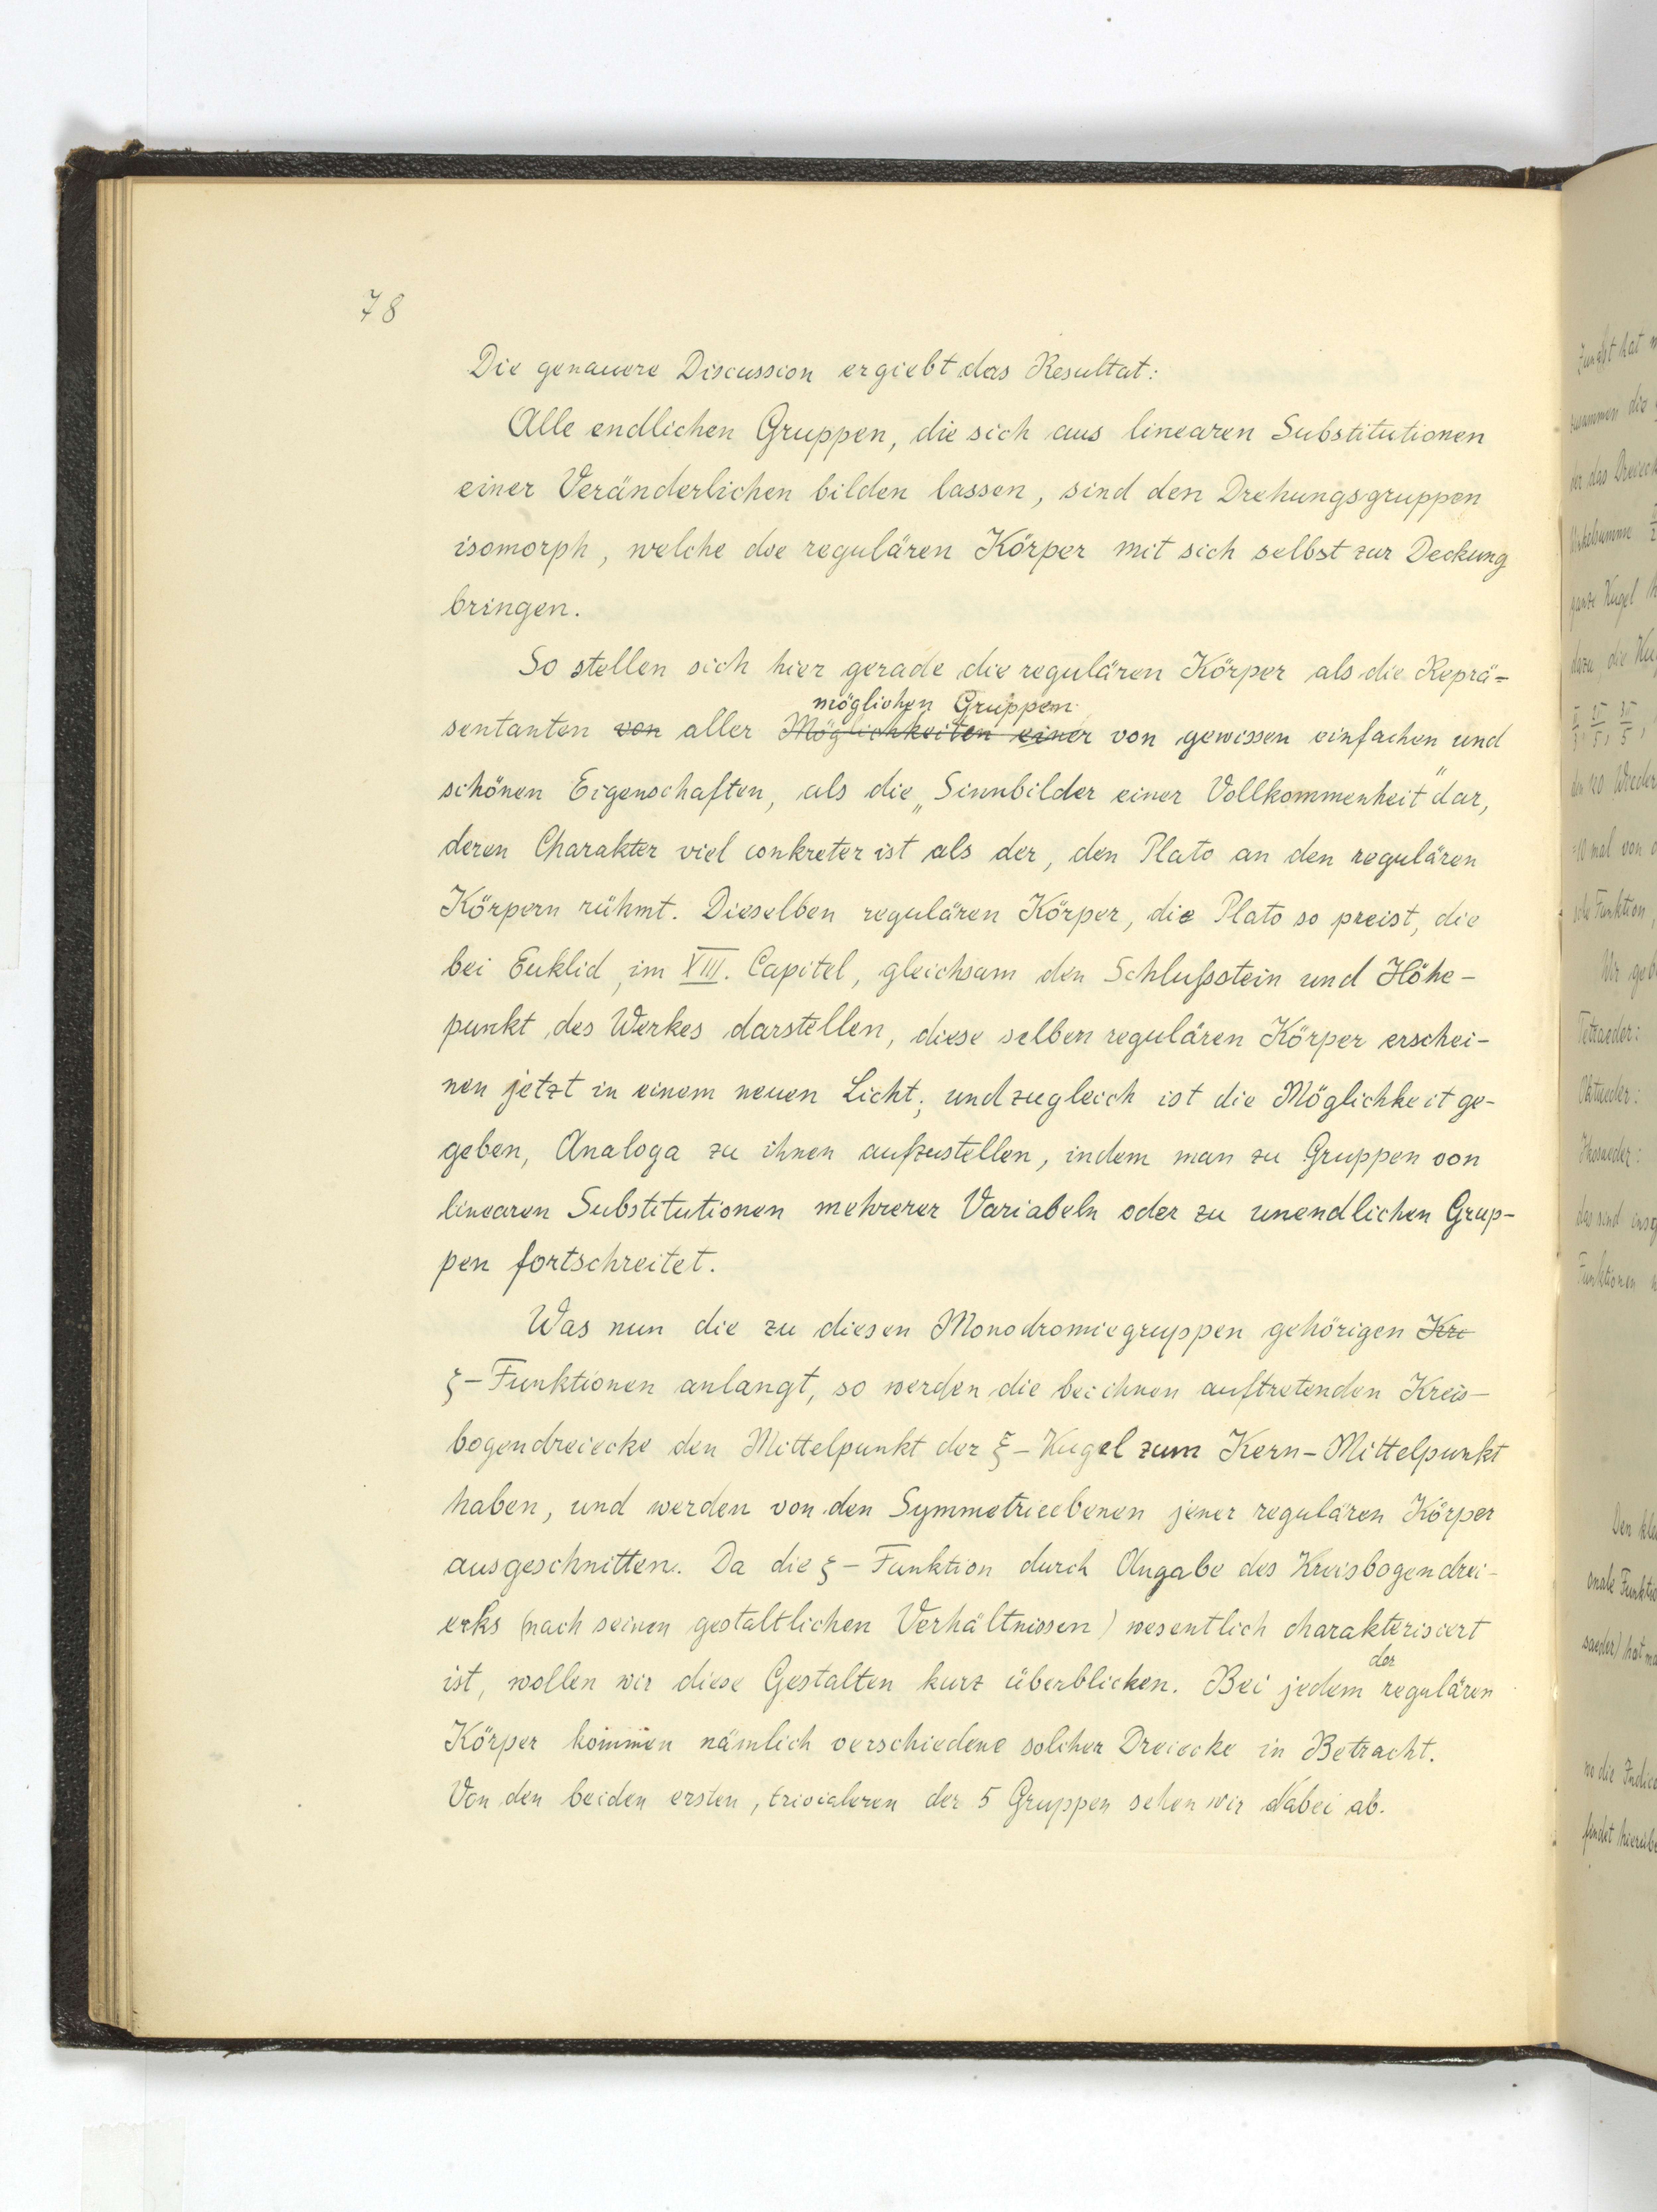 78
Die genauere Discussion ergiebt das Resultat:
Alle endlichen Gruppen, die sich aus linearen Substitutionen
einer Veränderlichen bilden lassen, sind den Drehungsgruppen
isomorph, welche die regulären Körper mit sich selbst zur Deckung
bringen.
So stellen sich hier gerade die regulären Körper als die Reprä=
möglichen Gruppen
sentanten von aller Möglichkeiten einer von gewissen einfachen und
schönen Eigenschaften, als die „Sinnbilder einer Vollkommenheit" dar,
deren Charakter viel conkreter ist als der, den Plato an den regulären
Körpern rühmt. Dieselben regulären Körper, die Plato so preist, die
bei Euklid, im XIII. Capitel, gleichsam den Schlußstein und Höhe-
punkt des Werkes darstellen, diese selben regulären Körper erschei-
nen jetzt in einem neuen Licht; und zugleich ist die Möglichkeit ge-
geben, Analoga zu ihnen aufzustellen, indem man zu Gruppen von
linearen Substitutionen mehrerer Variabeln oder zu unendlichen Grup-
pen fortschreitet.
Was nun die zu diesen Monodromiegruppen gehörigen Kre
ξ-Funktionen anlangt, so werden die bei ihnen auftretenden Kreis-
bogendreiecke den Mittelpunkt der ξ-Kugel zum Kern-Mittelpunkt
haben, und werden von den Symmetrieebenen jener regulären Körper
ausgeschnitten. Da die ξ-Funktion durch Angabe des Kreisbogendrei-
ecks (nach seinen gestaltlichen Verhältnissen) wesentlich charakterisiert
der
ist, wollen wir diese Gestalten kurz überblicken. Bei jedem regulären
Körper kommen nämlich verschiedene solcher Dreiecke in Betracht.
Von den beiden ersten, trivialeren der 5 Gruppen sehen wir dabei ab.